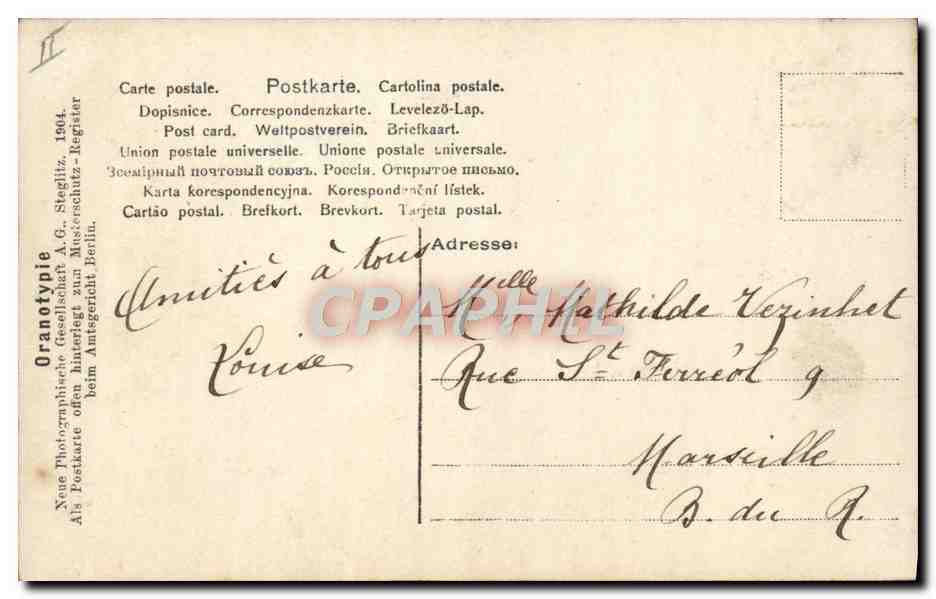 II
Carte postale. Postkarte. Cartolina postale.
Dopisnice. Correspondenzkarte. Levelező-Lap.
Post card. Weltpostverein. Briefkaart.
Union postale universelle. Unione postale universale.
Всемірный почтовый союзъ. Россія. Открытое письмо.
Karta korespondencyjna. Korespondenční lístek.
Cartão postal. Brefkort. Brevkort. Tarjeta postal.
Oranotypie
Neue Photographische Gesellschaft A.G., Steglitz. 1904.
Als Postkarte offen hinterlegt zum Musterschutz-Register
beim Amtsgericht Berlin.
Amitiés à tous
Louise
Adresse:
Melle Mathilde Vezinhet
Rue St Ferréol 9
Marseille
B. du R.
CPAPHIL